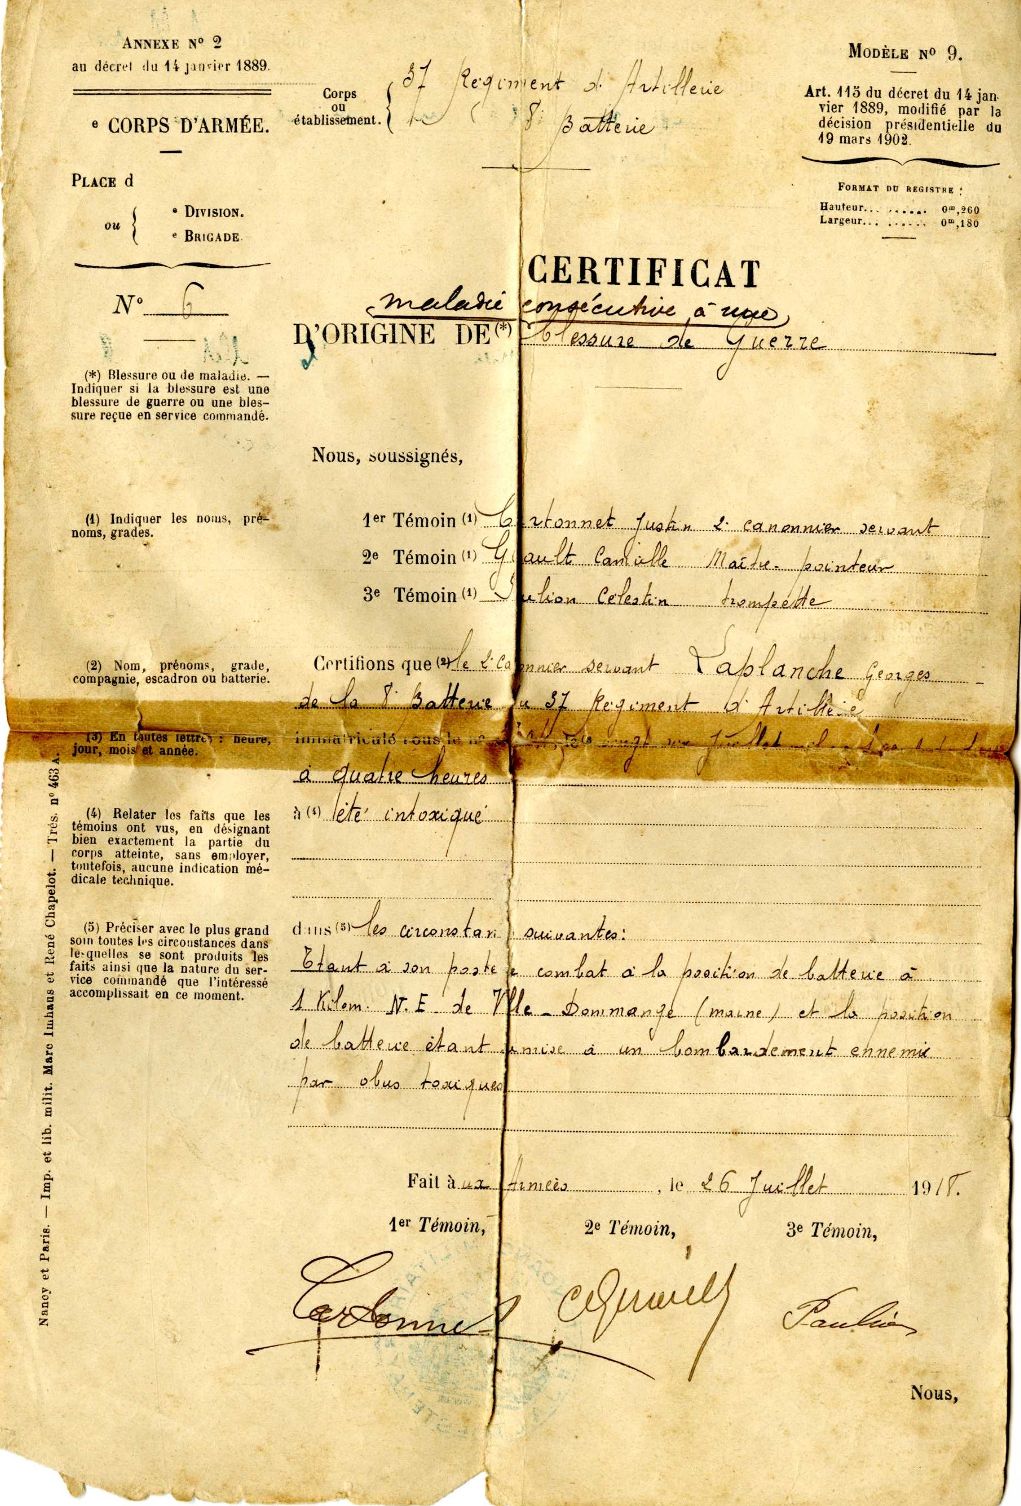 ANNEXE Nº 2
au décret du 14 janvier 1889.
e CORPS D'ARMÉE.
PLACE d
ou { e DIVISION.
e BRIGADE.
Nº 6
Corps
ou
établissement. { 37 Régiment d'Artillerie
8e Batterie
MODÈLE Nº 9.
Art. 115 du décret du 14 jan-
vier 1889, modifié par la
décision présidentielle du
19 mars 1902.
FORMAT DU REGISTRE :
Hauteur... ...... 0m,260
Largeur... ...... 0m,180
CERTIFICAT
maladie consécutive à une
D'ORIGINE DE (*) blessure de Guerre
(*) Blessure ou de maladie. —
Indiquer si la blessure est une
blessure de guerre ou une bles-
sure reçue en service commandé.
Nous, soussignés,
(1) Indiquer les noms, pré-
noms, grades.
1er Témoin (1) Justin 2e canonnier servant
2e Témoin (1) Camille Maître pointeur
3e Témoin (1) Célestin trompette
(2) Nom, prénoms, grade,
compagnie, escadron ou batterie.
Certifions que (2) le 2e canonnier servant Laplanche Georges
de la 8e Batterie du 37 Régiment d'Artillerie
(3) En toutes lettres : heure,
jour, mois et année.
immatriculé sous le nº vingt Juillet
à quatre heures
(4) Relater les faits que les
témoins ont vus, en désignant
bien exactement la partie du
corps atteinte, sans employer,
toutefois, aucune indication mé-
dicale technique.
à (4) été intoxiqué
(5) Préciser avec le plus grand
soin toutes les circonstances dans
lesquelles se sont produits les
faits ainsi que la nature du ser-
vice commandé que l'intéressé
accomplissait en ce moment.
dans (5) les circonstances suivantes :
Etant à son poste de combat à la position de batterie à
1 Kilom. N.E. de Ville-Dommange (marne) et la position
de batterie étant soumise à un bombardement ennemie
par obus toxiques
Fait à ux Armées, le 26 Juillet 1918.
1er Témoin, 2e Témoin, 3e Témoin,
Nous,
Nancy et Paris. — Imp. et lib. milit. Marc Imhaus et René Chapelot. — Trés. nº 463 A.